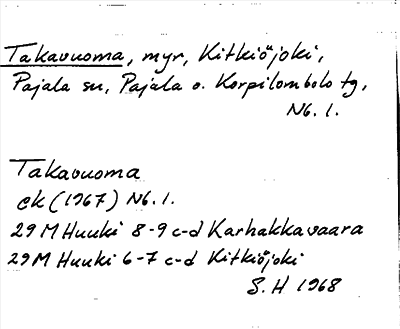 Takavuoma, myr, Kitkiöjoki,
Pajala sn, Pajala o. Korpilombolo tg,
Nb. l.
Takavuoma
ek (1967) Nb. l.
29 M Huuki 8-9 c-d Karhakkavaara
29 M Huuki 6-7 c-d Kitkiöjoki
S. H 1968